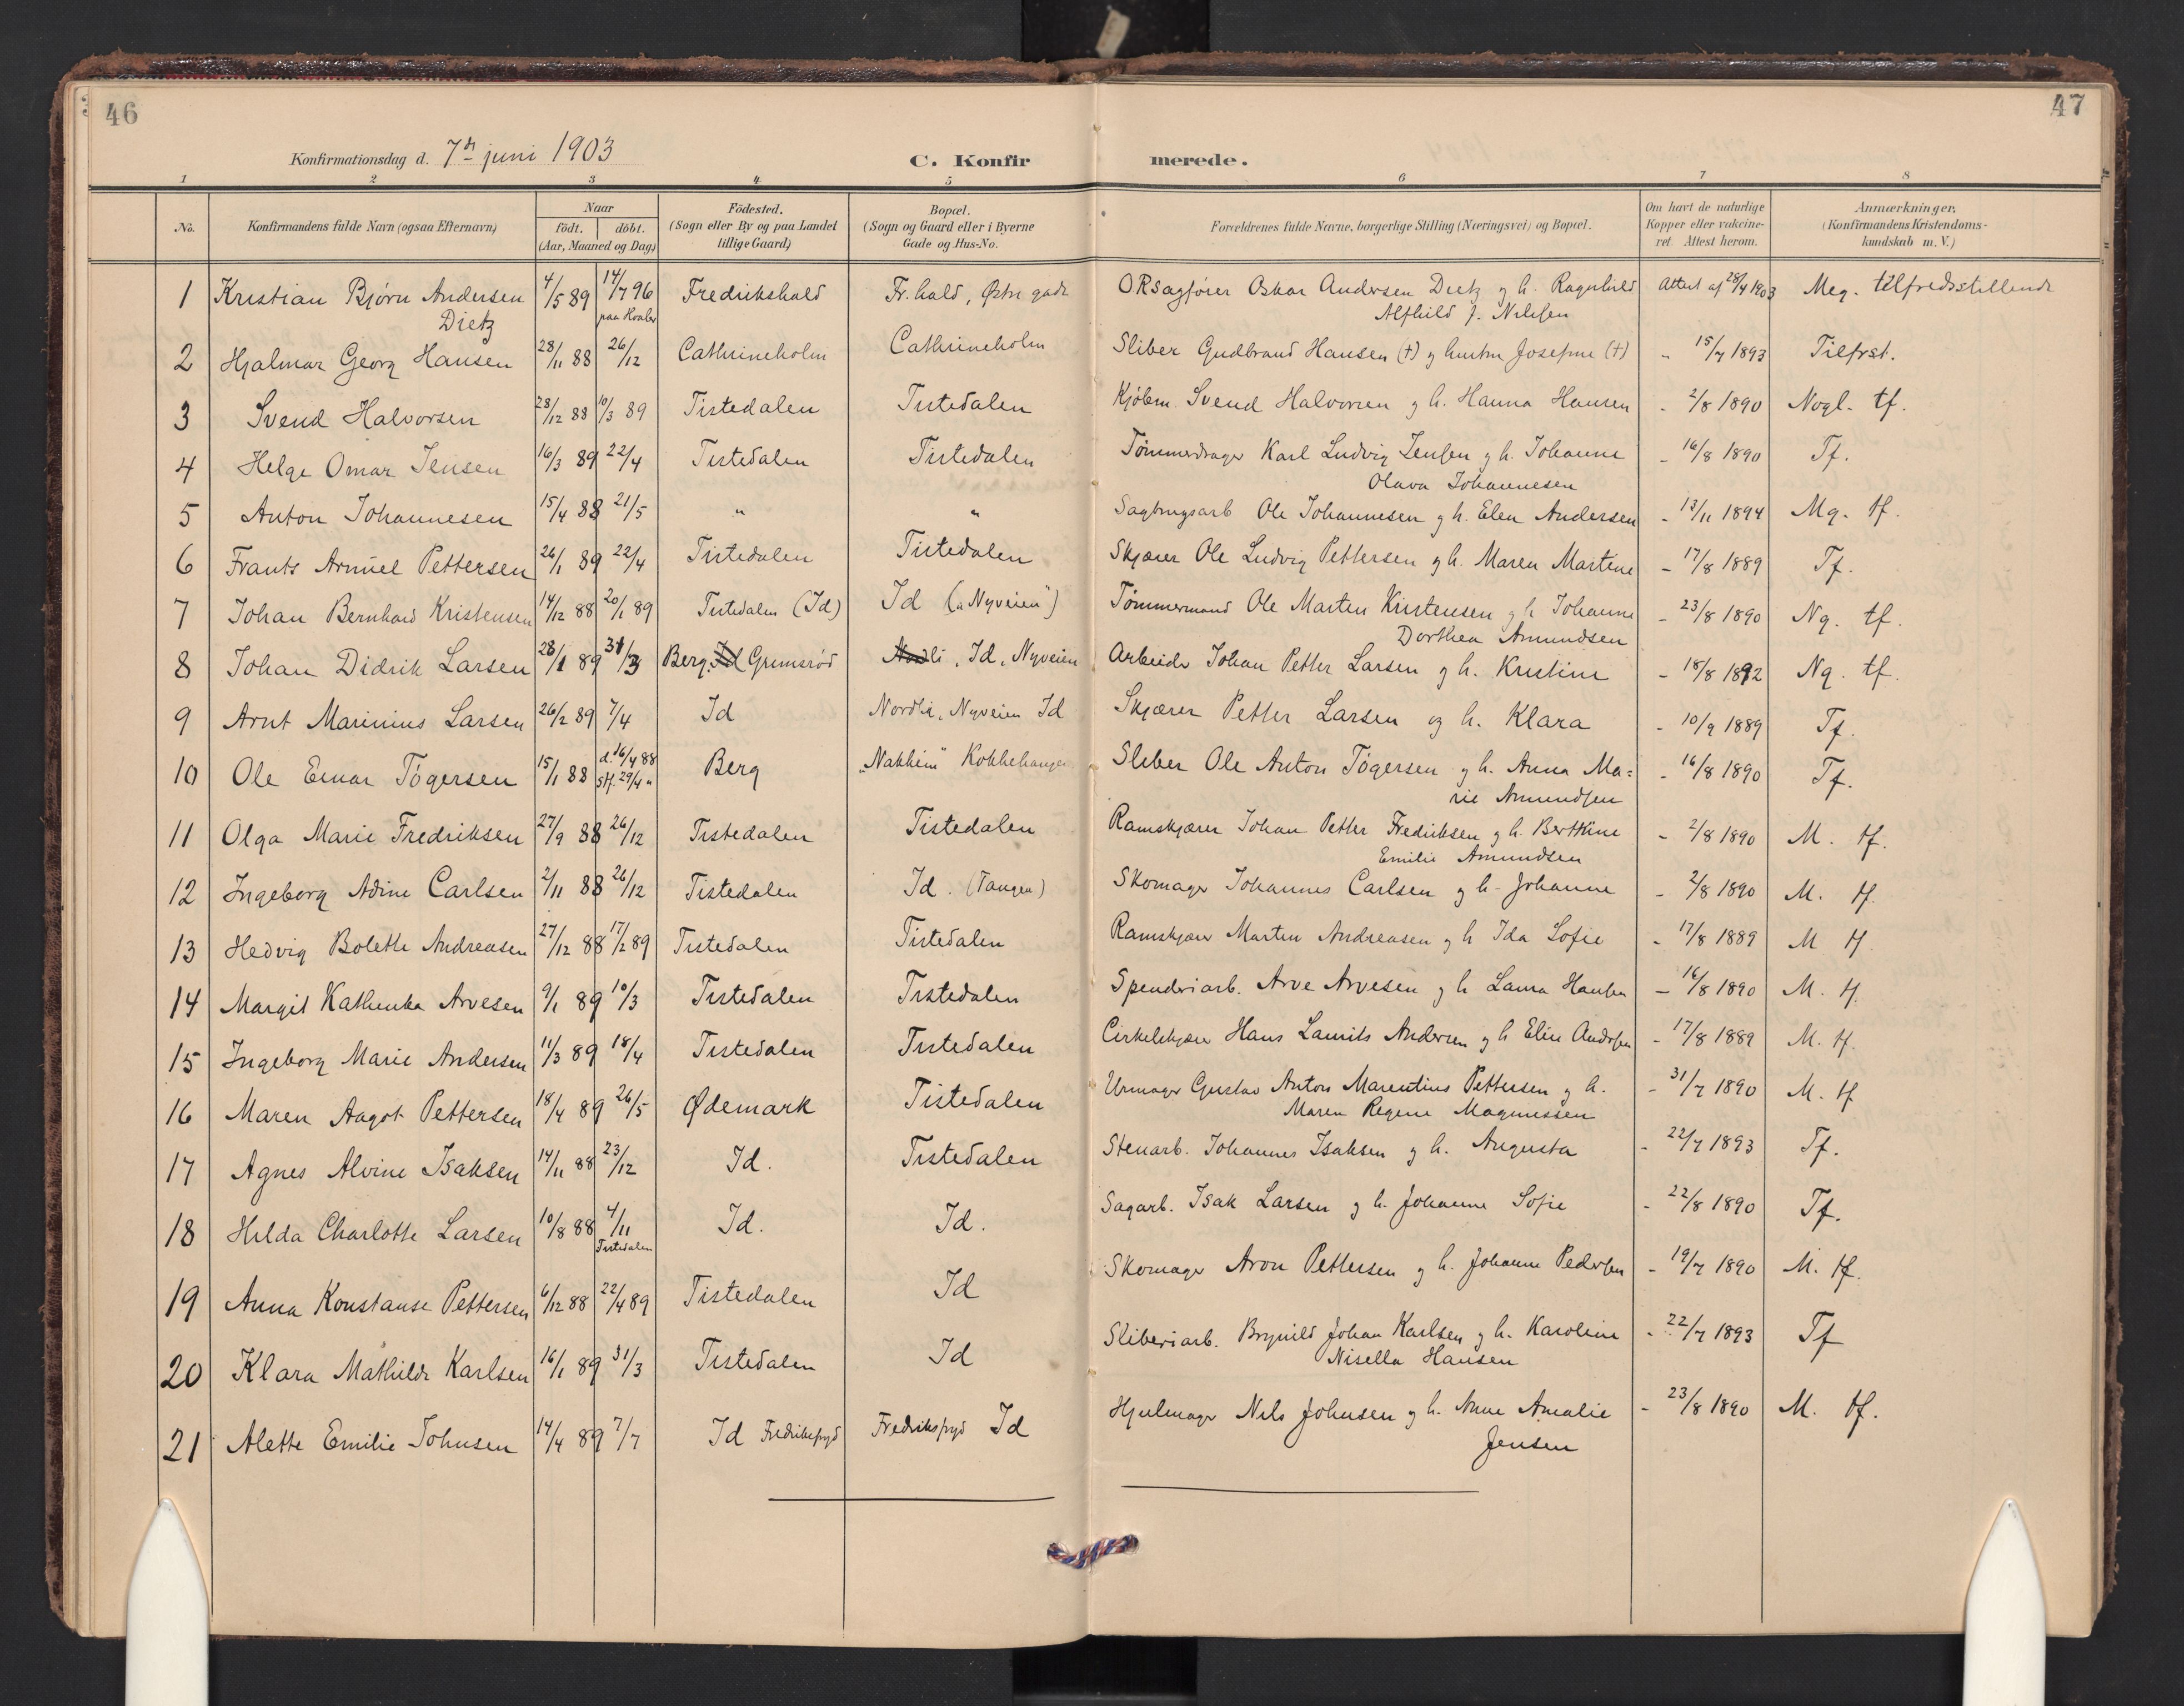 46
47
Konfirmationsdag d. 7de juni 1903
C. Konfir merede.
1 2 3 4 5 6 7 8
No. Konfirmandens fulde Navn (ogsaa Efternavn) Naar født. døbt. (Aar, Maaned og Dag) Födested. (Sogn eller By og paa Landet tillige Gaard) Bopæl. (Sogn og Gaard eller i Byerne Gade og Hus-No. Forældrenes fulde Navne, borgerlige Stilling (Næringsvei) og Bopæl. Om havt de naturlige Kopper eller vakcineret. Attest herom. Anmærkninger. (Konfirmandens Kristendomskundskab m. V.)
1 Kristian Bjørn Andersen 4/5 89 14/7 96 Fredrikshald Fr.hald, Østre gade ORsagfører Oskar Andersen Dietz g h. Ragnhild Attest af 28/4 1903 Meg. tilfredsstillende
Dietz paa Hvaler Alfhild f. Nilssen
2 Hjalmar Georg Hansen 28/11 88 26/12 Cathrineholm Cathrineholm Sliber Gudbrand Hansen (†) g hustru Josefine (†) " 15/7 1893 Tilfrst.
3 Svend Halvorsen 28/12 88 10/3 89 Tistedalen Tistedalen Kjøbm. Svend Halvorsen g h. Hanna Hansen - 2/8 1890 Nogl. tf.
4 Helge Omar Jensen 16/3 89 22/4 Tistedalen Tistedalen Tømmerdrager Karl Ludvig Jensen g h. Johanne - 16/8 1890 Tf.
Olava Johannesen
5 Anton Johannesen 15/4 88 21/5 " " Sagbrugsarb Ole Johannesen g h. Elen Andersen - 13/11 1894 Mg. tf.
6 Frants Armuel Pettersen 26/1 89 22/4 Tistedalen Tistedalen Skjærer Ole Ludvig Pettersen g h. Maren Martine - 17/8 1889 Tf.
7 Johan Bernhard Kristensen 14/12 88 20/1 89 Tistedalen (Id) Id ("Nyveien") Tømmermand Ole Martin Kristensen g h Johanne - 23/8 1890 Ng. tf.
Dorthea Amundsen
8 Johan Didrik Larsen 28/1 89 31/3 Berg. Id Grimsrød Nordli, Id, Nyveien Arbeider Johan Petter Larsen g h. Kristine - 18/8 1892 Ng. tf.
9 Arnt Marinius Larsen 26/2 89 7/4 Id Nordli, Nyveien Id Skjærer Petter Larsen og h. Klara - 10/9 1889 Tf.
10 Ole Einar Tøgersen 15/1 88 d. 16/4 88 stf. 29/4 " Berg "Nakkeim" Kokkehaugen Sliber Ole Anton Tøgersen g h. Anna Ma= - 16/8 1890 Tf.
rie Amundsen
11 Olga Marie Fredriksen 27/9 88 26/12 Tistedalen Tistedalen Ramskjærer Johan Petter Fredriksen g h. Berthine - 2/8 1890 M. tf.
Emilie Amundsen
12 Ingeborg Adine Carlsen 2/11 88 26/12 Tistedalen Id. (Tangen) Skomager Johannes Carlsen g h. Johanne - 2/8 1890 M. tf.
13 Hedvig Bolette Andreasen 27/12 88 17/2 89 Tistedalen Tistedalen Ramskjærer Martin Andreasen g h Ida Sofie - 17/8 1889 M tf.
14 Margit Kathinka Arvesen 9/1 89 10/3 Tistedalen Tistedalen Spinderiarb. Arve Arvesen g h Laura Hansen - 16/8 1890 M. tf.
15 Ingeborg Marie Andersen 11/3 89 18/4 Tistedalen Tistedalen Cirkelskjærer Hans Laurits Andersen g h Elise Andersen - 17/8 1889 M. tf.
16 Maren Aagot Pettersen 18/4 89 26/5 Ødemark Tistedalen Urmager Gustav Anton Marentius Pettersen g h. - 31/7 1890 M. tf
Maren Regine Magnussen
17 Agnes Alvine Isaksen 14/11 88 23/12 Id. Tistedalen Stenarb. Johannes Isaksen g h. Augusta - 22/7 1893 Tf.
18 Hilda Charlotte Larsen 10/8 88 4/11 Id. Id. Sagarb. Isak Larsen g h. Johanne Sofie - 22/8 1890 Tf.
Tistedalen
19 Anna Konstanse Pettersen 6/12 88 22/4 89 Tistedalen Id Skomager Aron Pettersen g h. Johanne Pedersen - 19/7 1890 M. tf.
20 Klara Mathilde Karlsen 16/1 89 31/3 Tistedalen Id Sliberiarb. Brynild Johan Karlsen g h. Karoline - 22/7 1893 Tf
Nisella Hansen
21 Alette Emilie Johnsen 14/4 89 7/7 Id Fredriksfryd Fredriksfryd Id Hjulmager Nils Johnsen g h. Anne Amalie - 23/8 1890 M. tf.
Jensen